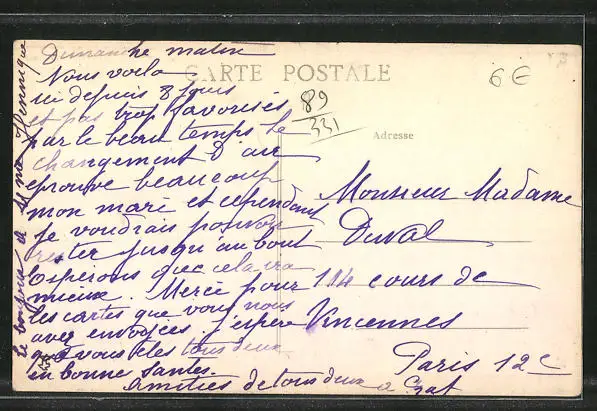 Dimanche matin
Nous voila
ici depuis 8 jours
et pas trop favorisés
par le beau temps le
changement d'air
eprouve beaucoup
mon mari et cependant
je voudrais pouvoir
rester jusqu'au bout
Esperons que cela ira
mieux. Merci pour
les cartes que vous nous
avez envoyées. j'espere
que vous êtes tous deux
en bonnes santes.
Amities de tous deux
le bonjour a
CARTE POSTALE
6€
89
331
Adresse
Monsieur Madame
Duval
114 cours de
Vincennes
Paris 12e